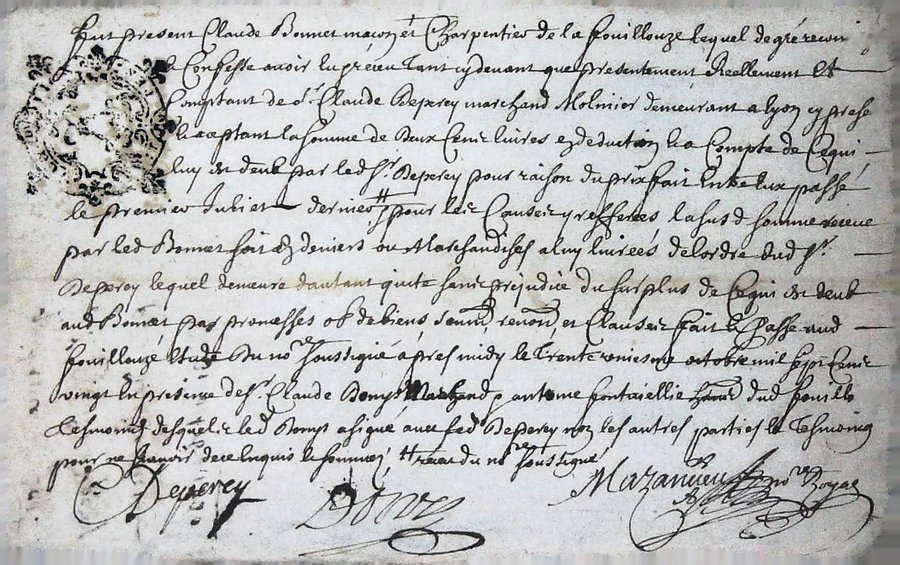 Fut present Claude Bonnet macon et Charpentier de la fouillouze lequel de gré reconu
& Confesse avoir heu & receu tant cydevant que presentement Reellement et
Comptant de sr. Claude Deperey marchand Molinier demeurant a lyon cy prese
& acceptant la somme de deux Cent livres en deduction & a Compte de Cequi
luy est deub par led sr. Deperey pour raison du prixfait entre eux passé
le premier Juliet dernier pour les Causes y refferées lasusd somme receue
par led Bonnet soit en deniers ou Marchandises a luy livrées de lordre dud sr.
Deperey lequel demeure dautant quite sans prejudice du surplus de Cequi est deub
aud Bonnet par promesses ob de biens soumd renond et Clauses fait & Passé aud
fouillouze Etude du nore soussigné apres midy le trente octobre mil sept Cent
vingt en presence de sr. Claude Marchand antoine dud fouillo
tesmoins desquels led a signé avec led Deperey non les autres parties & tesmoins
pour ne scavoir de ce enquis & sommes nore soussigné
Deperey
nore Royal